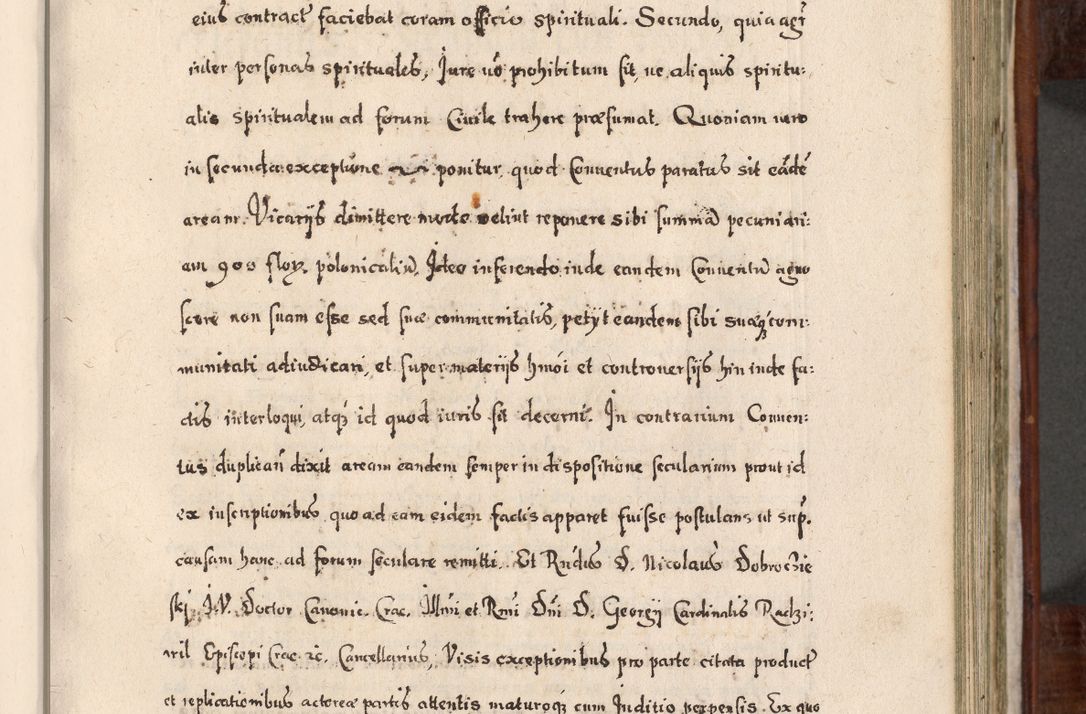 eius contract faciebat coram officio spirituali. Secundo, quia agr
inter personas spirituales, Jure uo prohibitum sit, ne aliquis spiritu:
alis spiritualem ad forum Ciuile trahere præsumat. Quoniam uero
in secunda exceptione ponitur, quod Conuentus paratus sit eãdē
aream Vicarijs dimittere modo uelint reponere sibi summã pecuniari:
am 900 flor. polonicaliũ, Ideo inferendo inde eandem Conuentũ agno
scere non suam esse sed suæ communitatis, petyt eandem sibi suæq3 com:
munitati adiudicari, et super materijs hmõi et controuersijs hin inde fa:
ctis interloqui, atq3 id quod iuris sit decerni. In contrarium Conuen:
tus duplicañ dixit aream eandem semper in dispositione secularium prout id
ex inscriptionibus quo ad eam eidem factis apparet fuisse postulans ut sup.
causam hanc ad forum seculare remitti. Et Rñdus D. Nicolaus Dobrocie
ski J.V. Doctor Canonic. Crac. Illmi et Rmi Dñi D. Georgij Cardinalis Radzi:
wil Episcopi Crac. &c. Cancellarius, Visis exceptionibus pro parte citata product
et replicationibus actoreæ partis attentis maturoq3 cum Juditio perpensis. Ex quo